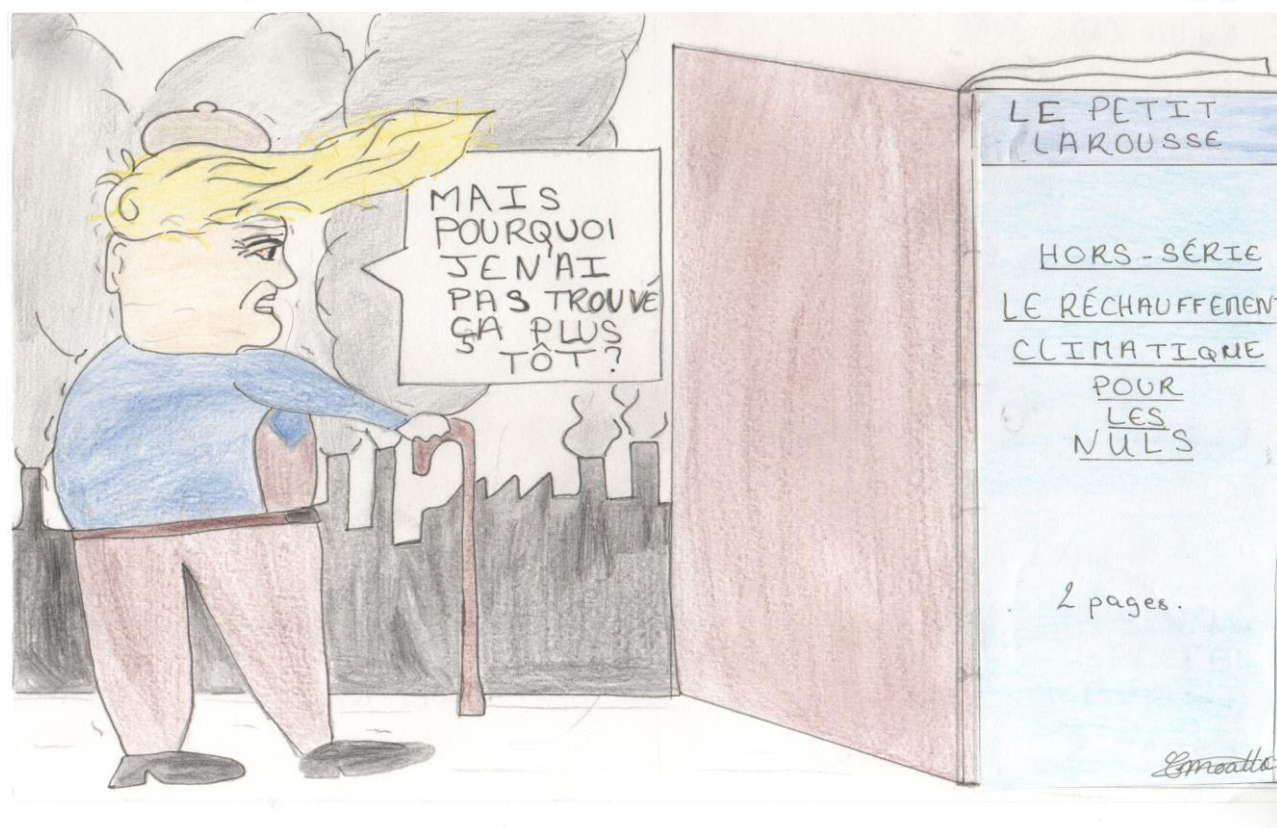 MAIS
POURQUOI
JE N'AI
PAS TROUVÉ
ÇA PLUS
TÔT?
LE PETIT
LAROUSSE
HORS-SÉRIE
LE RÉCHAUFFEMENT
CLIMATIQUE
POUR
LES
NULS
2 pages.